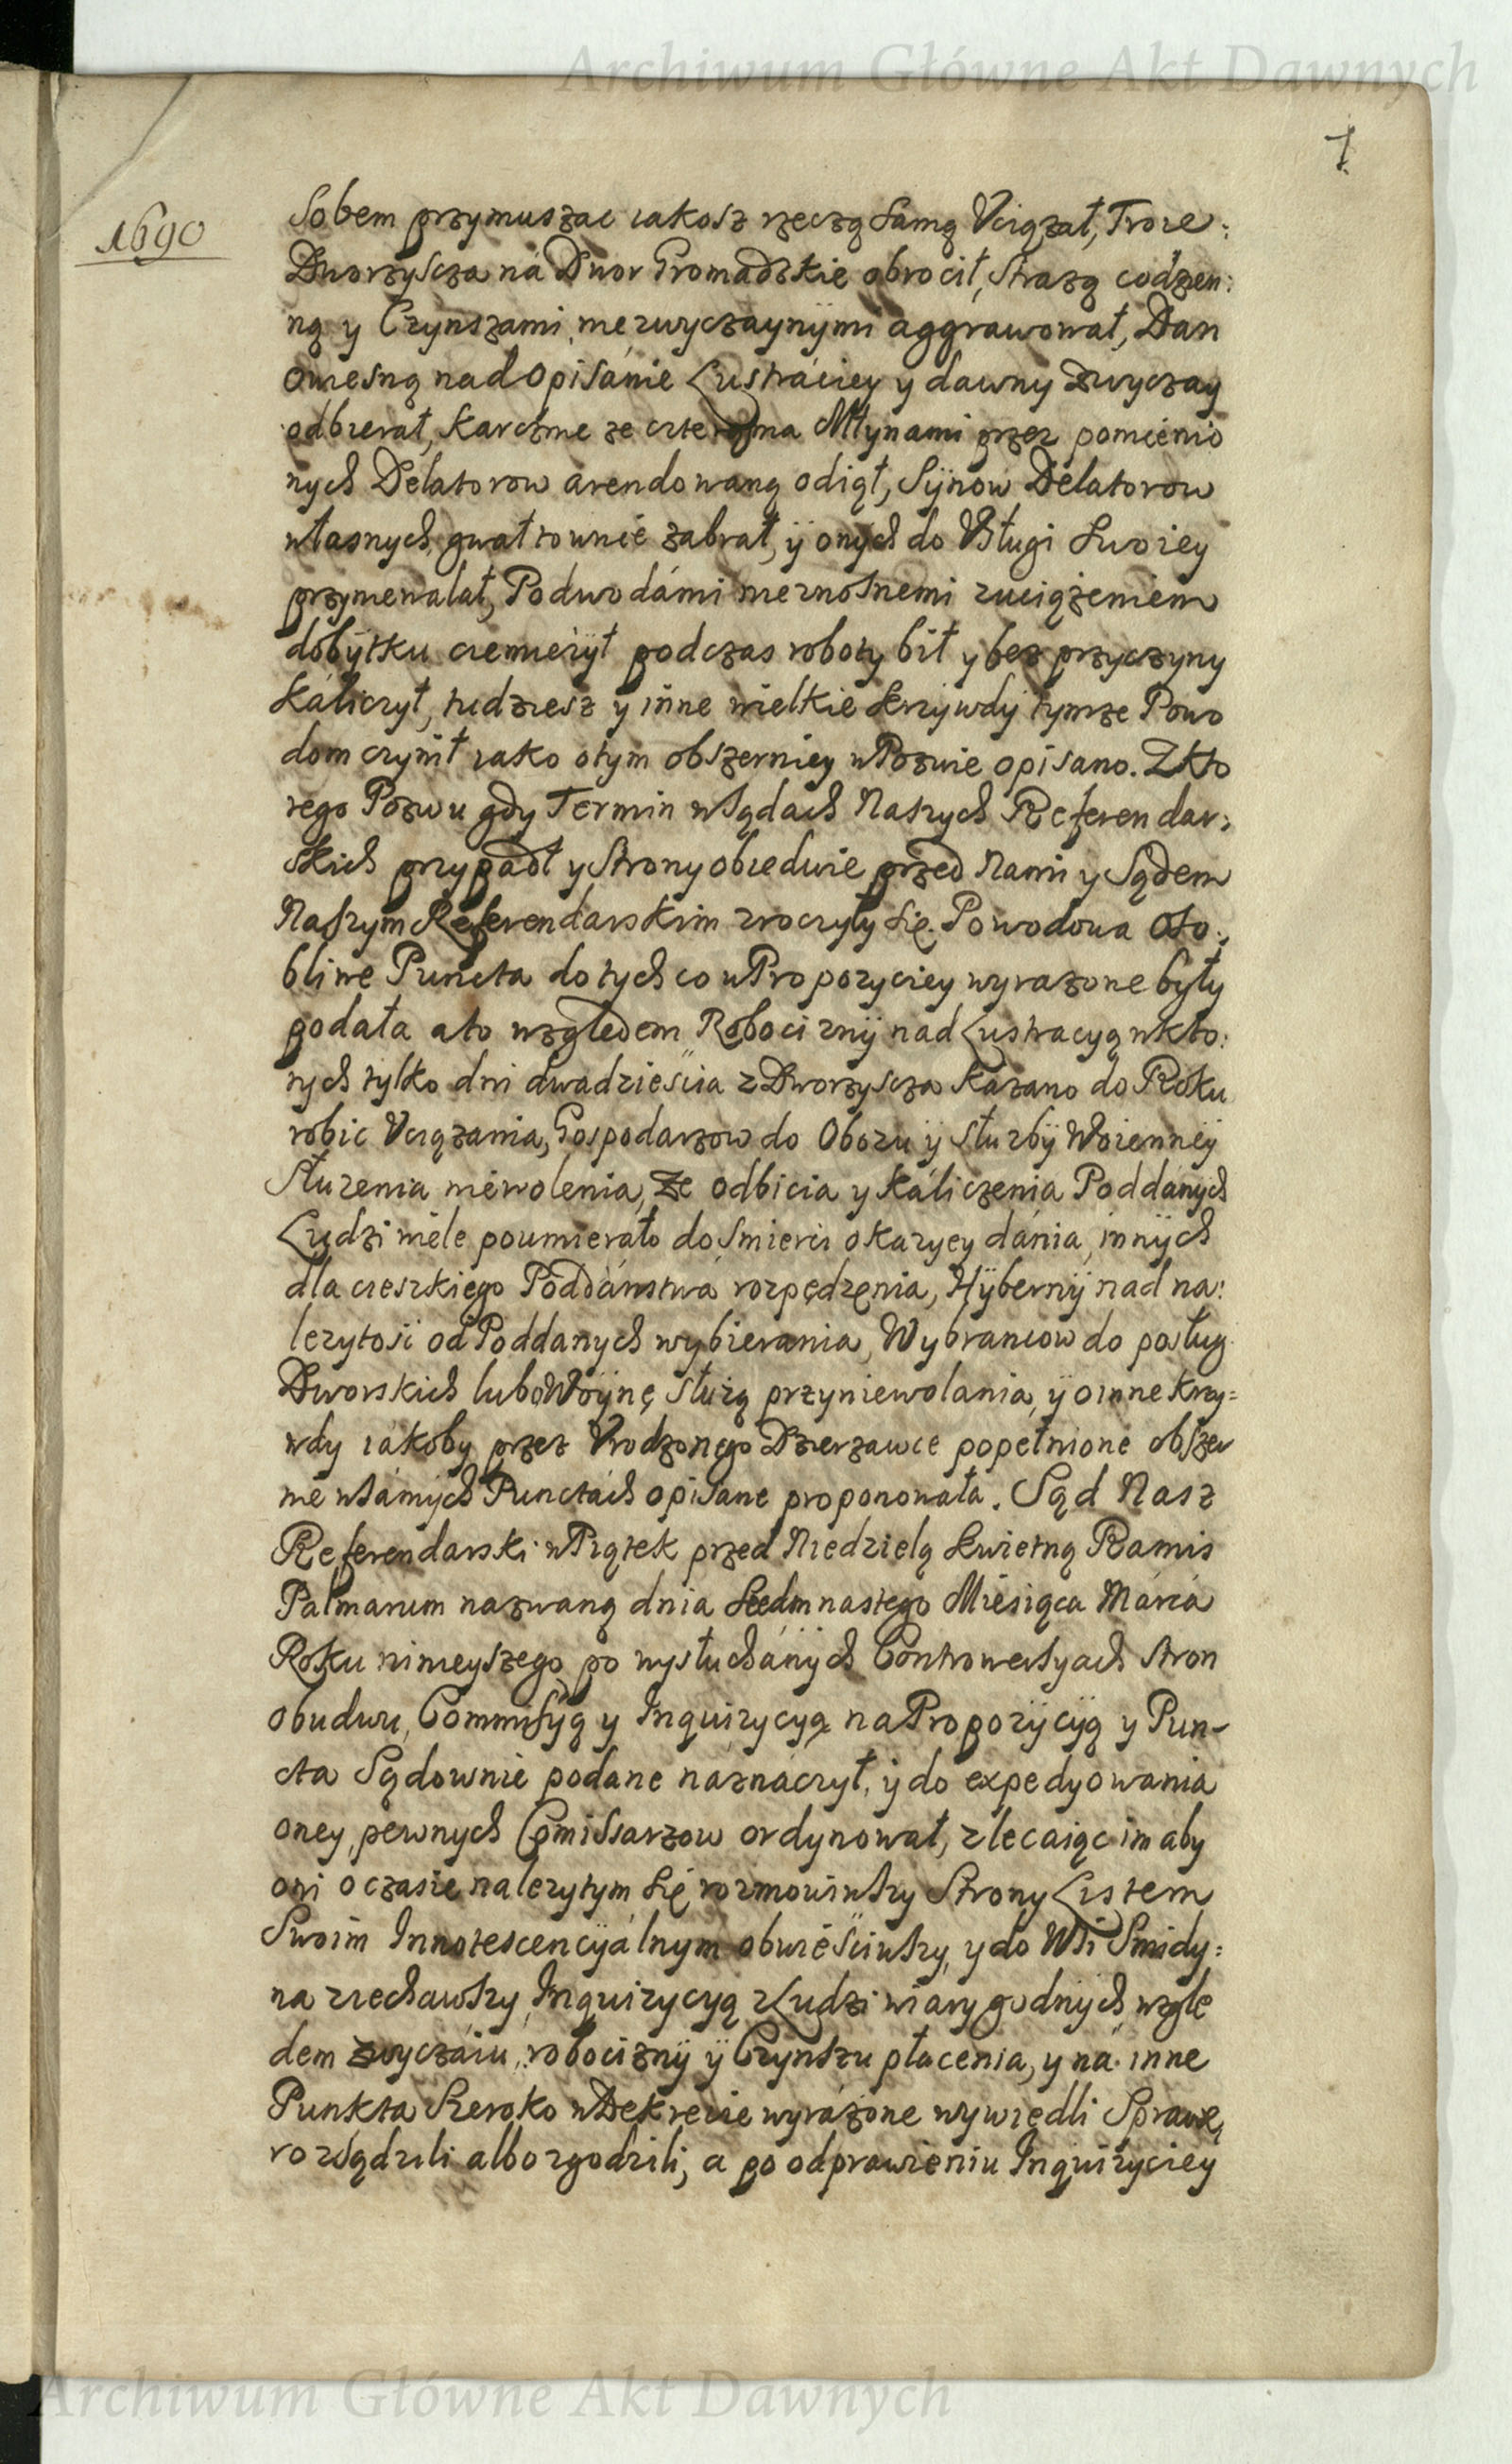 Archiwum Główne Akt Dawnych
1
1690
sobem przymuszac iakosz rzeczą samą Uciązał, Troie:
Dworzyscza ná Dwor Gromadzkie obrocił, Strazą codzien:
ną y Czynszami niezwyczaynymi aggrawował, Dan
owesną nad opisánie Lustráciey y dawny Zwyczay
odbierał, Karczme ze czterma Młynami przez pomienio
nych Delatorow arendowaną odiął, Synow Delatorow
własnych gwałtownie zabrał, ÿ onych do Usługi Swoiey
przyniewalał, Podwodámi nieznosnemi zuciążeniem
dobytku ciemiężył podczas roboty bił y bez przyczyny
káliczył, tudziesz y inne wielkie krzywdy tymze Powo
dom czynił iako otym obszerniey w Pozwie opisano. Z kto
rego Pozwu gdy Termin w Sądach Naszych Referendar:
skich przypadł y Strony obiedwie przed Nami y Sądem
Naszym Referendarskim stoczyły się. Powodowa Oso:
bliwe Puncta do tych co w Propozyciey wyrazone były
podała a to względem Robociznÿ nad Lustracyą w kto:
rych tylko dni dwadzieścia z Dworzyscza kazano do Roku
robic Uciązania, Gospodarzow do Obozu ÿ słuzbÿ Woiennëy
Słuzenia niewolenia, Ze odbicia y káliczenia Poddánych
Ludzi wiele poumierało do Smierci okazyey dánia, innÿch
dla cieszkiego Poddánstwá rozpędzęnia, Hÿbernÿ nad na:
lezytość od Poddanych wybierania, Wybrancow do posług
Dworskich lubo Woÿnę służą przyniewolania, ÿ o inne krzy=
wdy iákoby przez Urodzonego Dzierzawce popełnione obszer
nie w sámych Punctách opisane proponowała. Sąd Nasz
Referendarski w Piątek przed Niedzielą kwietną Ramis
Palmarum nazwaną dnia Siedmnastego Miesiąca Márca
Roku ninieyszego po wysłuchánÿch Controwersyach stron
obudwu, Commissyą y Inquizycyą na Propozÿcÿą y Pun-
cta Sądownie podane náznáczył, ÿ do expedyowania
oney, pewnych Comissarzow ordynował, zlecaiąc im aby
oni o czasie nalezytym się rozmowiwszy Strony Listem
Swoim Innotescencÿálnym obwieściwszy, y do Wsi Smidy:
na ziechawszy, Inquizycyą z Ludzi wiary godnÿch, wzglę
dem zwyczáiu, robociznÿ ÿ Czynszu płacenia, y ná inne
Punkta szeroko w Dekrecie wyrázone wywiedli Sprawę,
rozsądzili albo zgodzili, a po odprawieniu Inquizyciey
Archiwum Główne Akt Dawnych